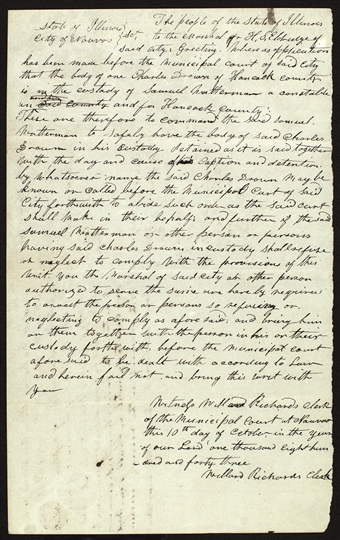 State of Illinois } The people of the State of Illinois
City of Nauvoo } Sct. to the Marshal of H. S. Eldridge of
said city: Greeting. Whereas application
has been made before the Municipal court of said city
that the body of one Charles Drown of Hancock county
is in the custody of Samuel Matterman a constable
in and for Hancock county:
These are therefore to command the said Samuel
Matterman to safely have the body of said Charles
Drown in his custody detained as it is said together
with the day and cause of his caption and detention
by whatsoever name the said Charles Drown may be
known or called before the Municipal Court of said
City forthwith to abide such order as the said court
shall make in their behalf; and further if the said
Samuel Matterman or other person or persons
having said Charles Drown in custody shall refuse
or neglect to comply with the provision of this
writ you the Marshal of said city or other person
authorized to serve the same are hereby required
to arrest the person or persons so refusing or
neglecting to comply as aforesaid; and bring him
or them together with the person in his or their
custody forthwith before the Municipal court
aforesaid to be dealt with according to Law
and herein fail not and bring this writ with
you
Witness Willard Richards clerk
of the Municipal Court at Nauvoo
this 10th day of October in the year
of our Lord one thousand eight hun
and and forty three
Willard Richards Clerk